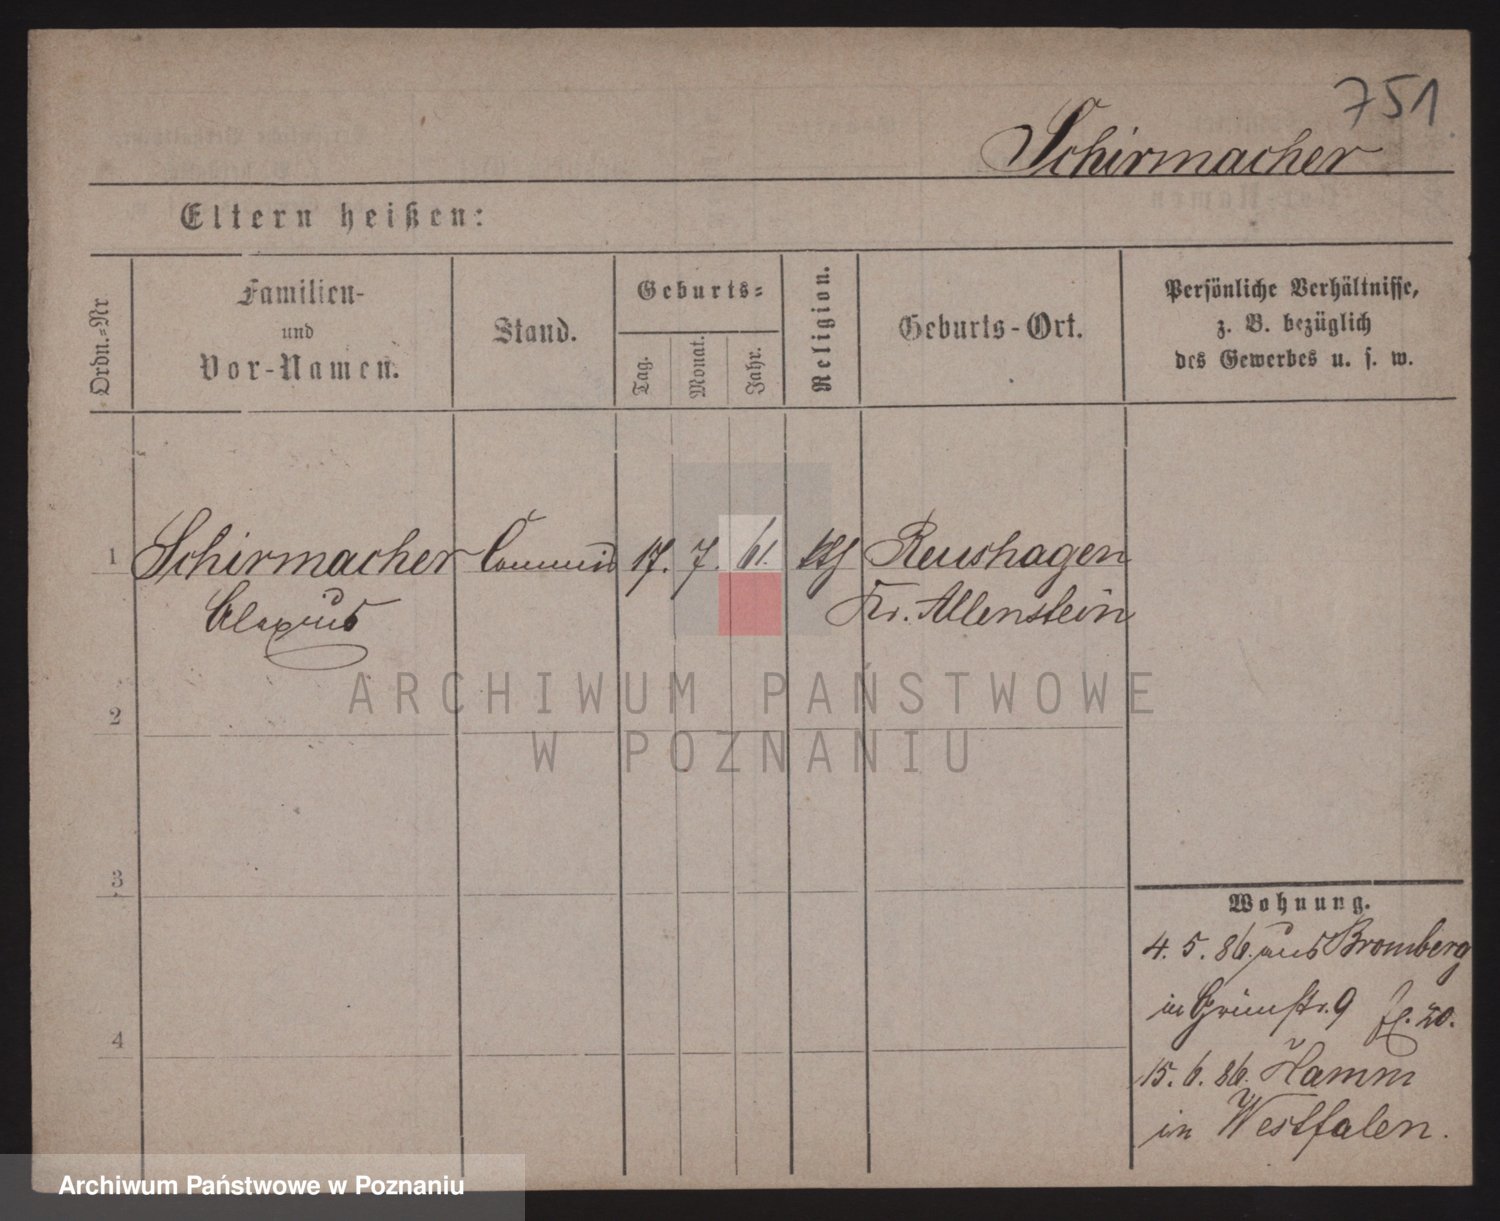 751
Schirmacher
Eltern heißen:
Ordn.=Nr
Familien-
und
Vor-Namen.
Stand.
Geburts=
Tag.
Monat.
Jahr.
Religion.
Geburts-Ort.
Persönliche Verhältnisse,
z. B. bezüglich
des Gewerbes u. s. w.
1 Schirmacher Commis 17. 7. 61. kth Reushagen
Alexius Kr. Allenstein
2
3
4
Wohnung.
4. 5. 86. aus Bromberg
in Grünstr. 9 fl. 20.
15. 6. 86. Hamm
in Westfalen.
ARCHIWUM PAŃSTWOWE
W POZNANIU
Archiwum Państwowe w Poznaniu